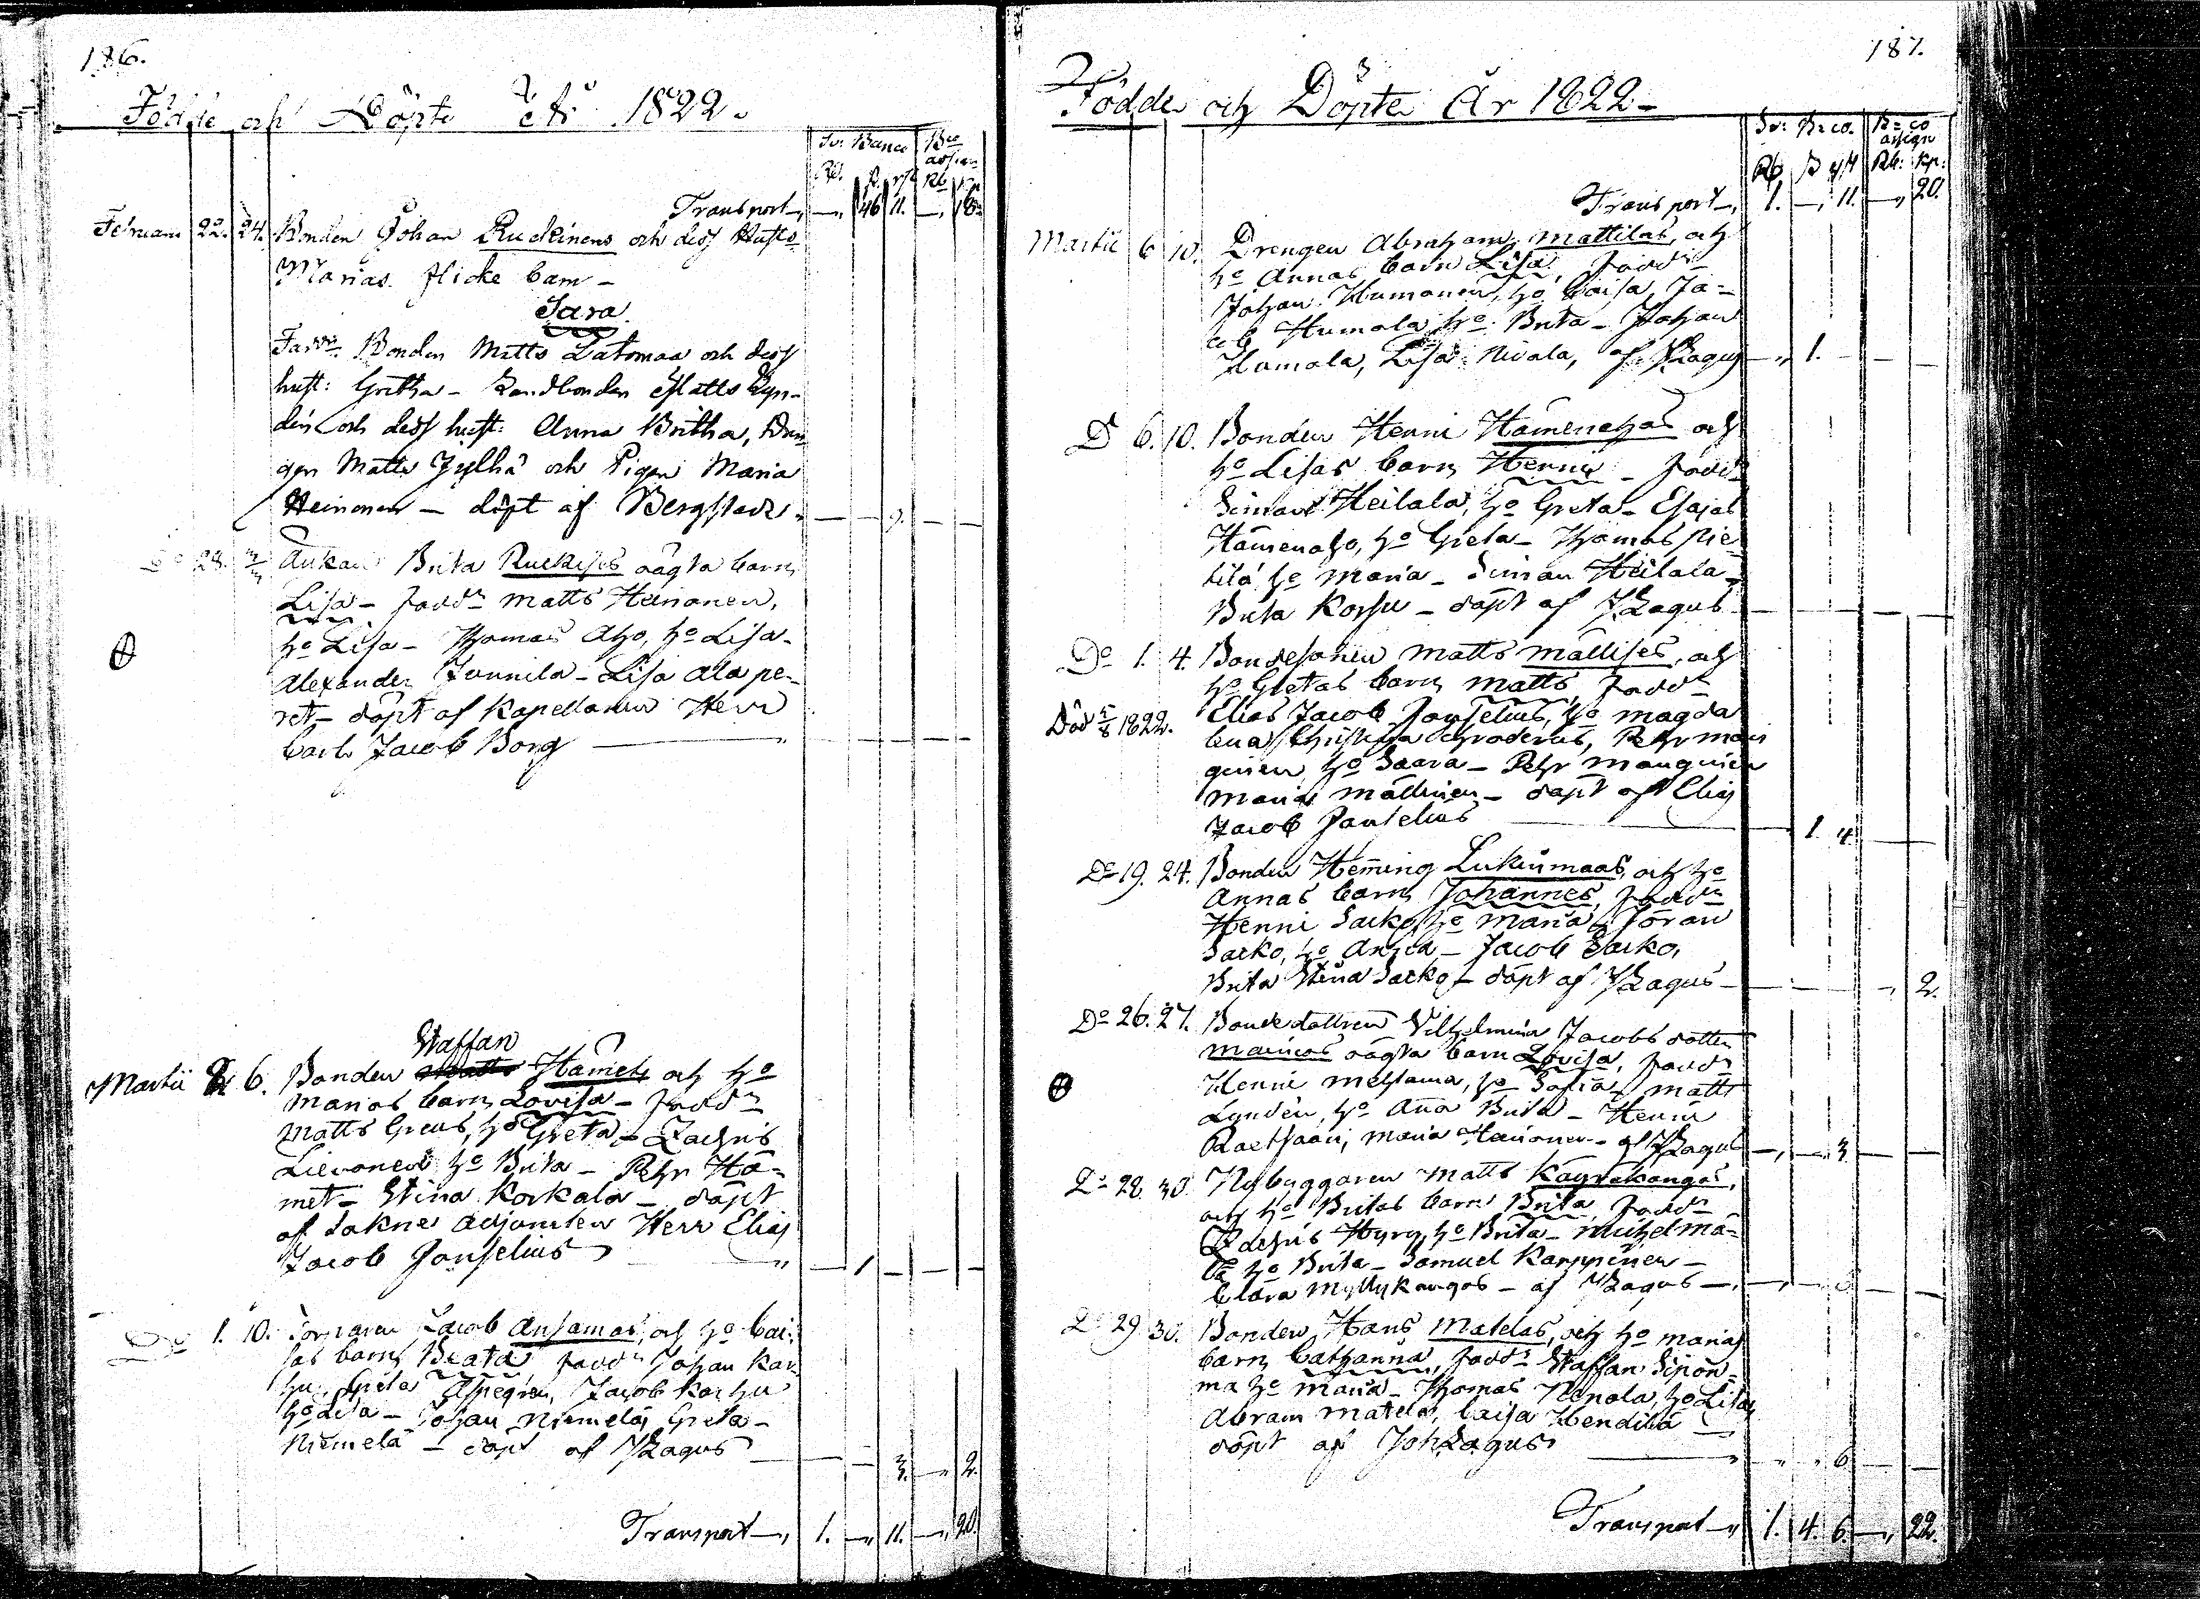 186.
Födde och Döpte År 1822.
Sv: Banco Bco assign
Rd. s. rst Rb kp
Transport — 46 11. — 18
Februari 22. 24. Bonden Johan Ruckinens och dess Hust
Marias flicke barn –
Sara
Faddr. Bonden Matts Latomaa och dess
hust: Gretha – Landbonden Matts Lyn-
dén och dess hust: Anna Britha, Drän
gen Matts Jylhä och Pigan Maria
Heinonen – döpt af Bergstadi
Do 28. 3/3 Enkan Brita Ruckises oägta barn
Lisa – fadd. Matts Heinonen,
ho Lisa – Thomas Aho, ho Lisa –
Alexander Junnila – Lisa Alape-
ret – döpt af Kapellanen Herr
Carl Jacob Borg
Staffan
Martii 2. 6. Bonden Hämets och ho
Marias barn Lovisa – fadd
Matts Greus, ho Greta – Zachris
Lievonen ho Brita – Pehr Hä-
met – Stina Korkala – döpt
af Sokne Adjuncten Herr Elias
Jacob Jonselius — 1 —
Do 1. 10. Torparen Jacob Ansamas, och ho Cai-
sas barn Beata fadd. Johan Kar-
hu, Greta Aspegren, Jacob Karhu
ho Lisa – Johan Niemelä, Greta
Niemelä – döpt af J Zagus — 3. — 2.
Transport — 1. — 11. — 20.
187.
Födde och Döpte År 1822 –
Sv: B:co. B:co assign
Rd s rst Rb: kp:
Transport — 1. — 11. — 20.
Martii 6 10. Drengen Abraham Mattilas, och
ho Annas barn Lisa, fadd
Johan Humonen, ho Caisa, Ja-
cob Humala ho Brita – Johan
Humala, Lisa Nivala, af J Zagus — 1. —
Do 6. 10. Bonden Henni Hämenahos och
ho Lisas barn Henni – fadd
Simon Heilala, ho Greta – Esajas
Hämenaho, ho Greta – Thomas Pie-
tilä ho Maria – Simon Heilala –
Brita Korsu – döpt af J Zagus
Do 1. 4. Bondesonen Matts Mällises, och
ho Gretas barn Matts, fadd
Död 5/8 1822. Elias Jacob Jonselius, ho Magda
lena Christina Groderus, Pehr Man
guinen, ho Saara – Pehr Manguinen
Maria Mällinen – döpt af Elias
Jacob Jonselius — 1. 4.
Do 19. 24. Bonden Hemming Lukinmaas, och ho
Annas barn Johannes, fadd
Henni Sarko, ho Maria, Jöran
Sarko, ho Anna – Jacob Sarko,
Brita Stina Sarko – döpt af J Zagus — 2.
Do 26. 27. Bondedottren Vilhelmina Jacobs dotter
Maunos oägta barn Lovisa, fadd
Henni Metsama, ho Sofia, Matts
Lyndén, ho Anna Brita – Henni
Raetsaari, Maria Heinonen – af J Zagus — 3
Do 28. 30. Nybyggaren Matts Käyräkangas,
och ho Britas barn Brita, fadd
Zachris Hyry, ho Brita – Michel Mä-
lä ho Brita – Samuel Karppinen –
Clara Myllykangas – af J Zagus
Do 29 30. Bonden Hans Matelas, och ho Marias
barn Catharina, fadd. Staffan Sipon-
ma ho Maria – Thomas Nenola, ho Lisa,
Abram Matela, Caisa Hendilä
döpt af Joh Zagus — 6
Transport — 1. 4. 6. — 22.